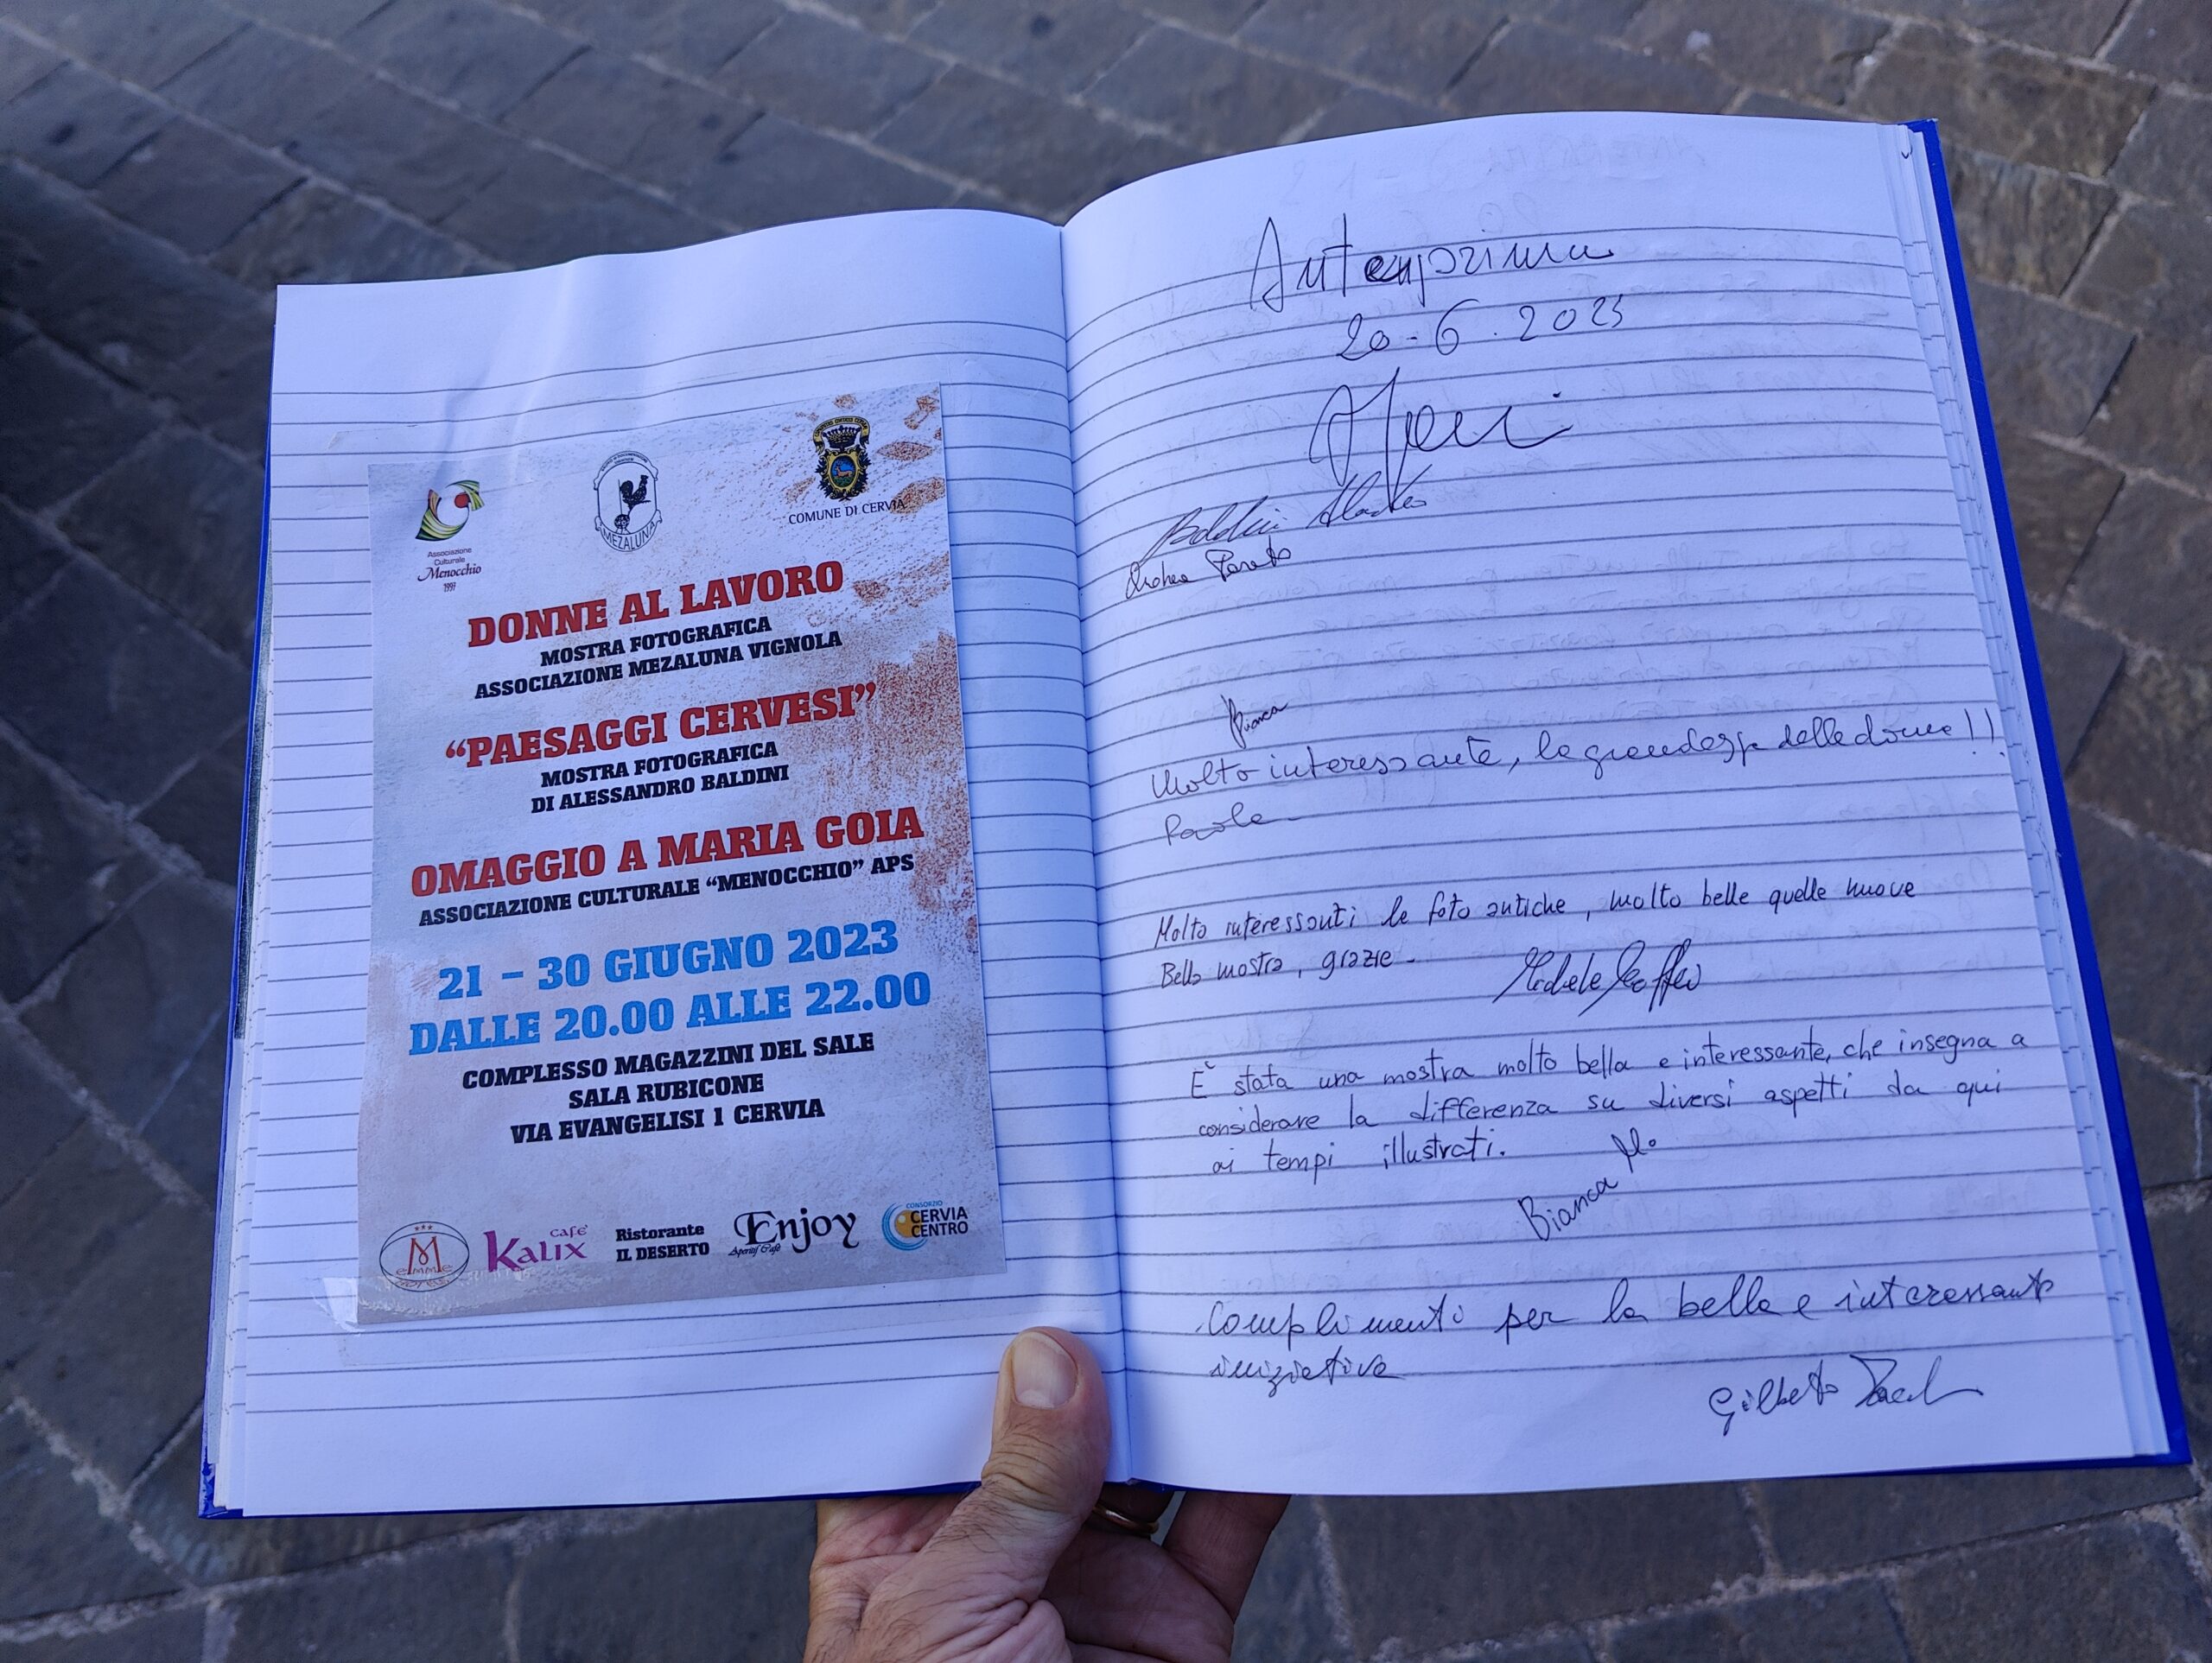 Associazione
Culturale
Menocchio
1997
MEZALUNA
COMUNE DI CERVIA
DONNE AL LAVORO
MOSTRA FOTOGRAFICA
ASSOCIAZIONE MEZALUNA VIGNOLA
“PAESAGGI CERVESI”
MOSTRA FOTOGRAFICA
DI ALESSANDRO BALDINI
OMAGGIO A MARIA GOIA
ASSOCIAZIONE CULTURALE “MENOCCHIO” APS
21 – 30 GIUGNO 2023
DALLE 20.00 ALLE 22.00
COMPLESSO MAGAZZINI DEL SALE
SALA RUBICONE
VIA EVANGELISI 1 CERVIA
eMMe
CAFE'
KALIX
Ristorante
IL DESERTO
Enjoy
Aperitif Cafè
CONSORZIO
CERVIA
CENTRO
Antemprima
20-6.2023
Baldini
Andrea
Bianca
Molto interessante, la grandezza delle donne!!
Paola
Molto interessanti le foto antiche, molto belle quelle nuove
Bella mostra, grazie -
È stata una mostra molto bella e interessante, che insegna a
considerare la differenza su diversi aspetti da qui
ai tempi illustrati.
Bianca
Complimenti per la bella e interessante
iniziativa
Gilberto